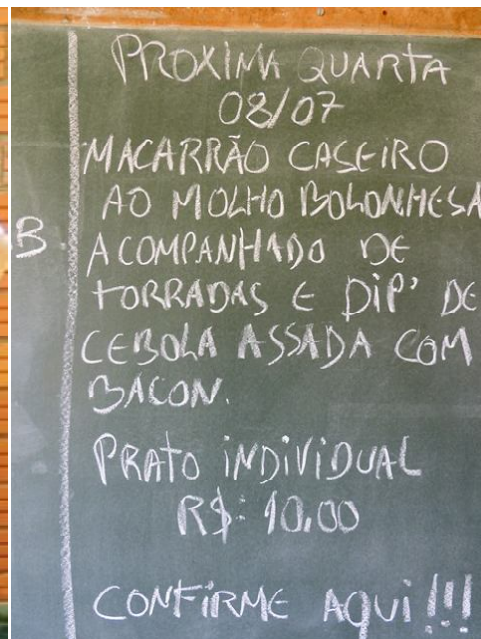 PROXIMA QUARTA
08/07
MACARRÃO CASEIRO
AO MOLHO BOLONHESA
B. ACOMPANHADO DE
TORRADAS E DIP' DE
CEBOLA ASSADA COM
BACON.
PRATO INDIVIDUAL
R$: 10,00
CONFIRME AQUI!!!